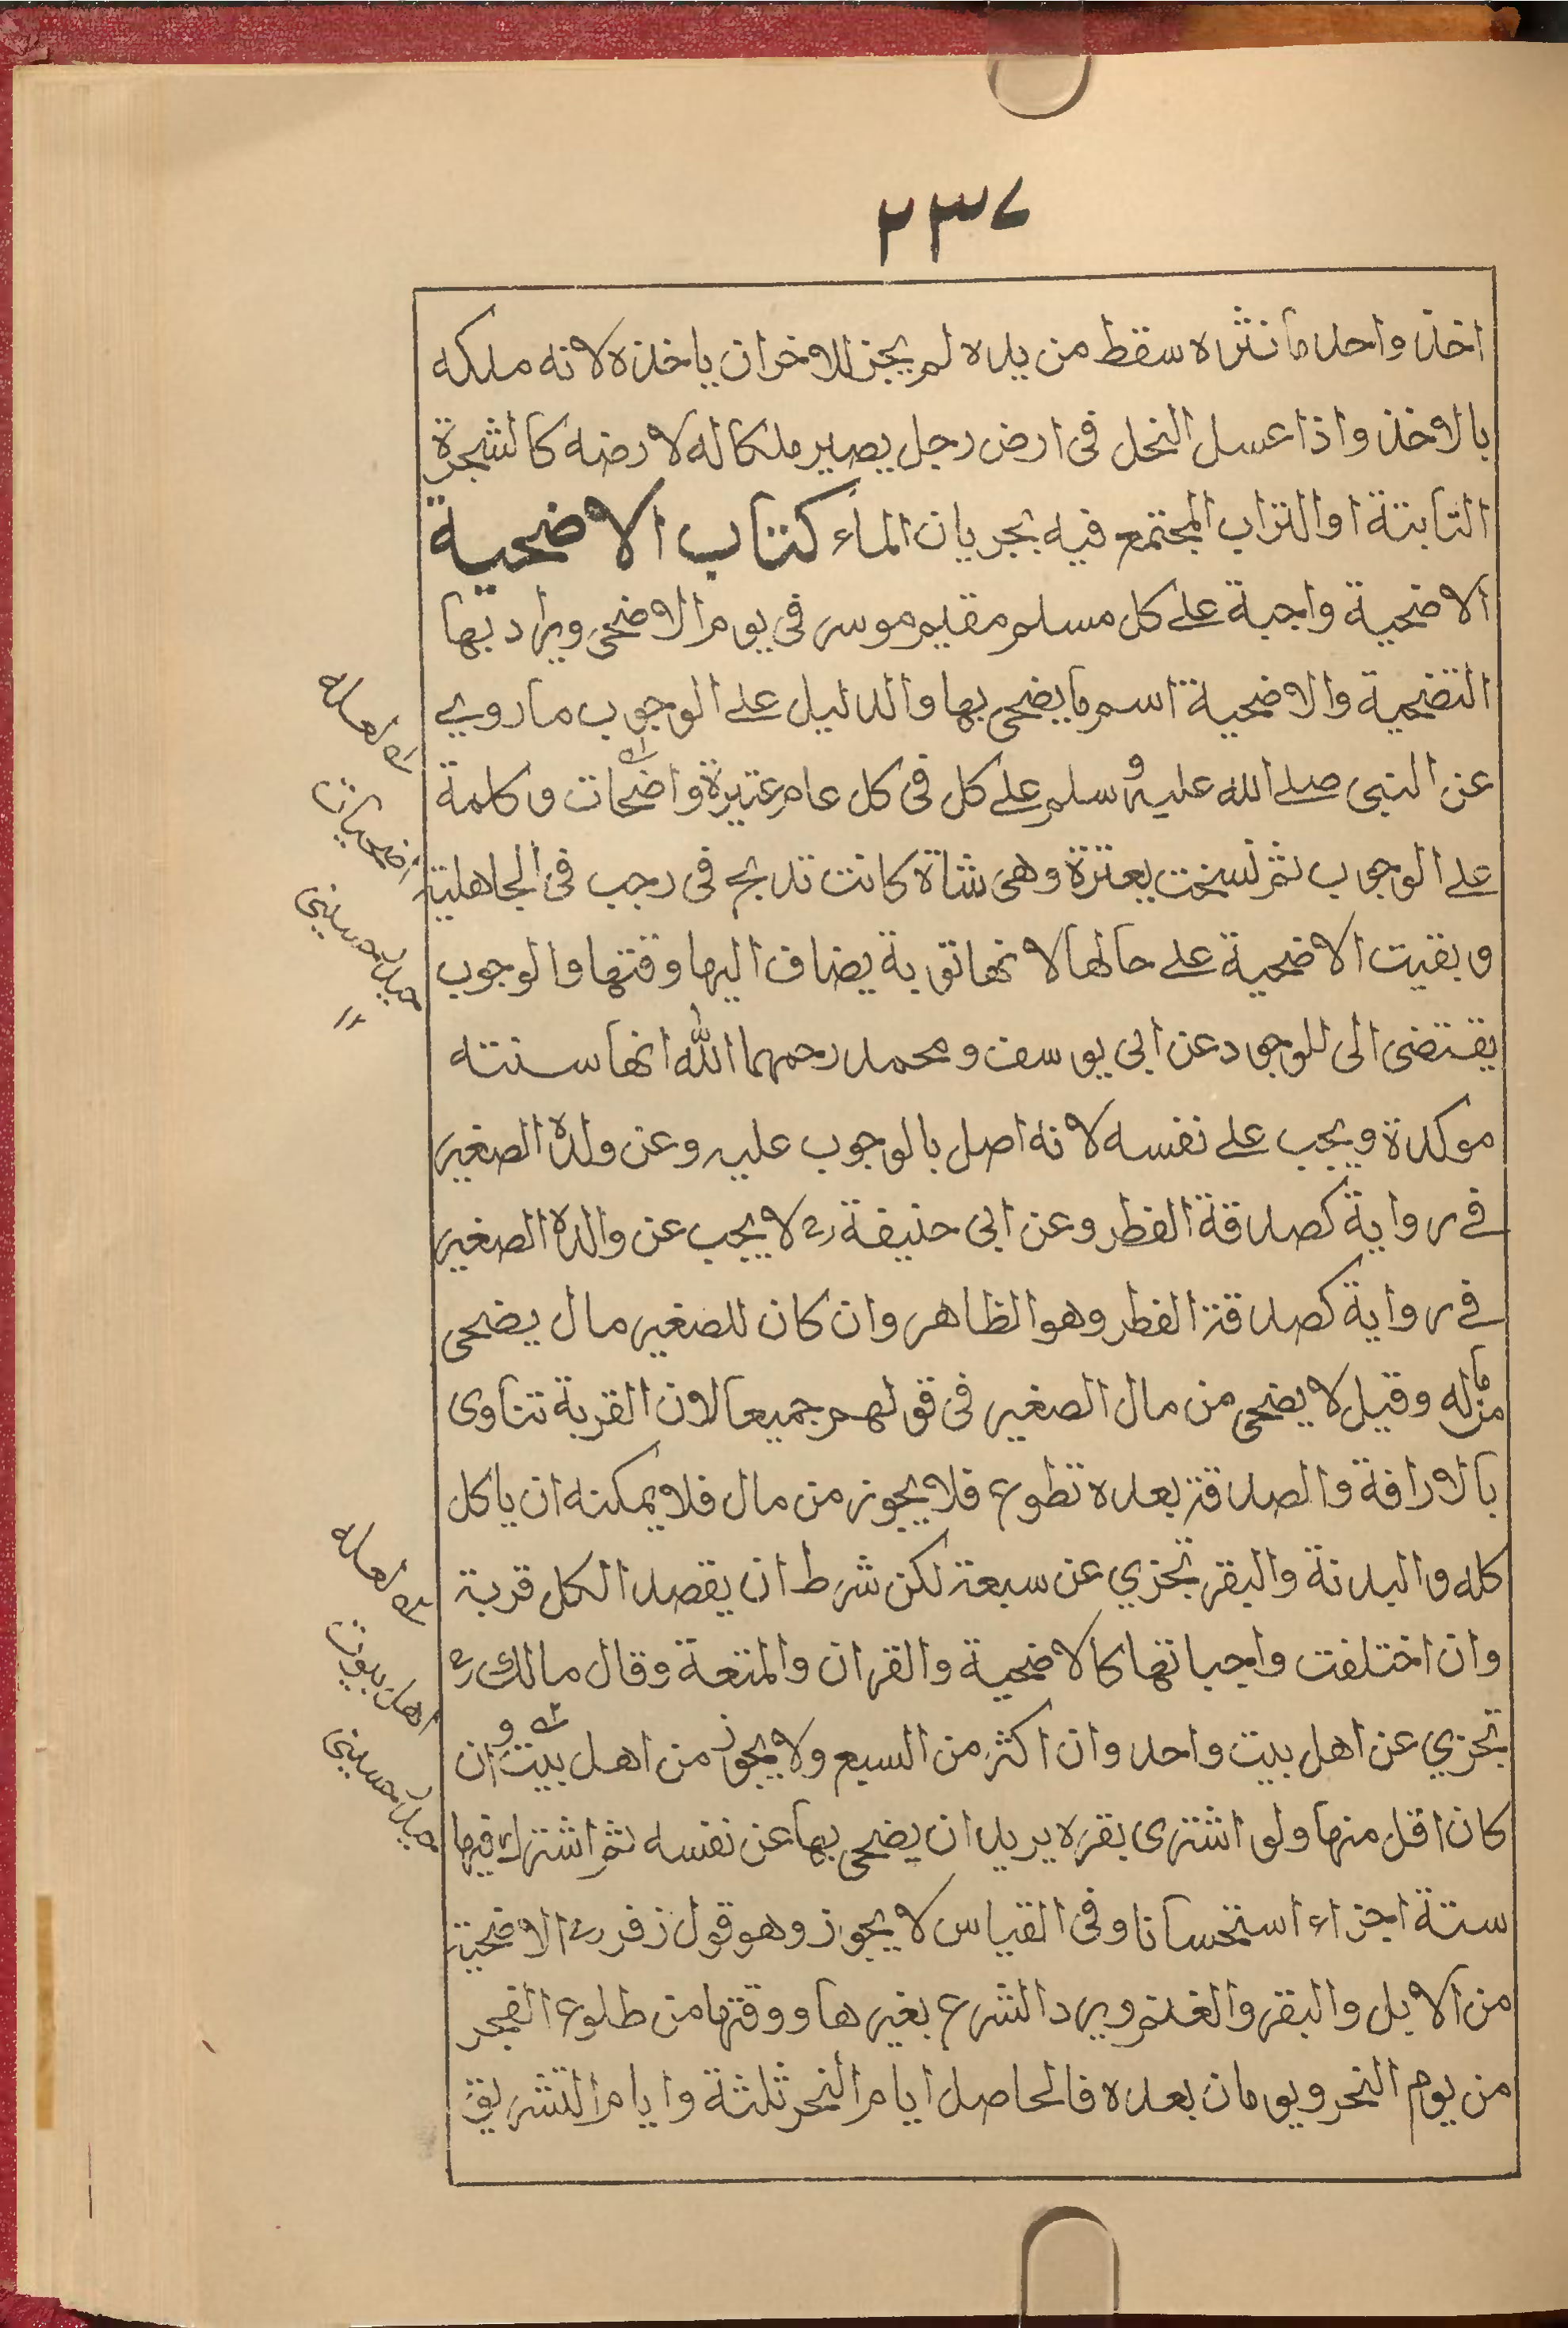 ٢٣٧
اخذ واحد ما نثره سقط من يده لم يجز للاخر ان ياخذه لانه ملكه
بالاخذ واذا عسل النحل فى ارض رجل يصير ملكا له لارضه كالشجرة
الثابتة او التراب المجتمع فيه بجريان الماء كتاب الاضحية
الاضحية واجبة على كل مسلم مقيم موسر فى يوم الاضحى ويراد بها
التضحية والاضحية اسم ما يضحى بها والدليل على الوجوب ما روي
عن النبى صلے الله عليه وسلم على كل فى كل عام عتيرة واضحات وكلمة
على الوجوب ثم نسخت بعترة وهى شاة كانت تذبح فى رجب فى الجاهلية
وبقيت الاضحية على حالها لانها قربة يضاف اليها وقتها والوجوب
يقتضى الى للوجود عن ابى يوسف ومحمد رحمهما الله انها سنته
موكدة ويجب على نفسه لانه اصل بالوجوب عليه وعن ولده الصغير
فى رواية كصدقة الفطر وعن ابى حنيفة رح لا يجب عن والده الصغير
فى رواية كصدقة الفطر وهو الظاهر وان كان للصغير مال يضحى
من ماله وقيل لا يضحى من مال الصغير فى قولهم جميعا لان القربة تتاوى
بالاراقة والصدقة بعده تطوع فلا يجوز من مال فلا يمكنه ان ياكل
كله والبدنة والبقر تجزي عن سبعة لكن شرط ان يقصد الكل قربة
وان اختلفت واجباتها كالاضحية والقران والمتعة وقال مالك رح
تجزي عن اهل بيت واحد وان اكثر من السبع ولا يجوز من اهل بيت وان
كان اقل منها ولو اشترى بقره يريد ان يضحى بها عن نفسه ثم اشترك فيها
ستة اجزاء استحسانا وفى القياس لا يجوز وهو قول زفر رح الاضحية
من الابل والبقر والغنم ويرد الشرع بغيرها ووقتها من طلوع الفجر
من يوم النحر ويومان بعده فالحاصل ايام النحر ثلثة وايام التشريق
لعله
اضحيات
حسينى
١٢
لعله
اهل بيوت
حسينى